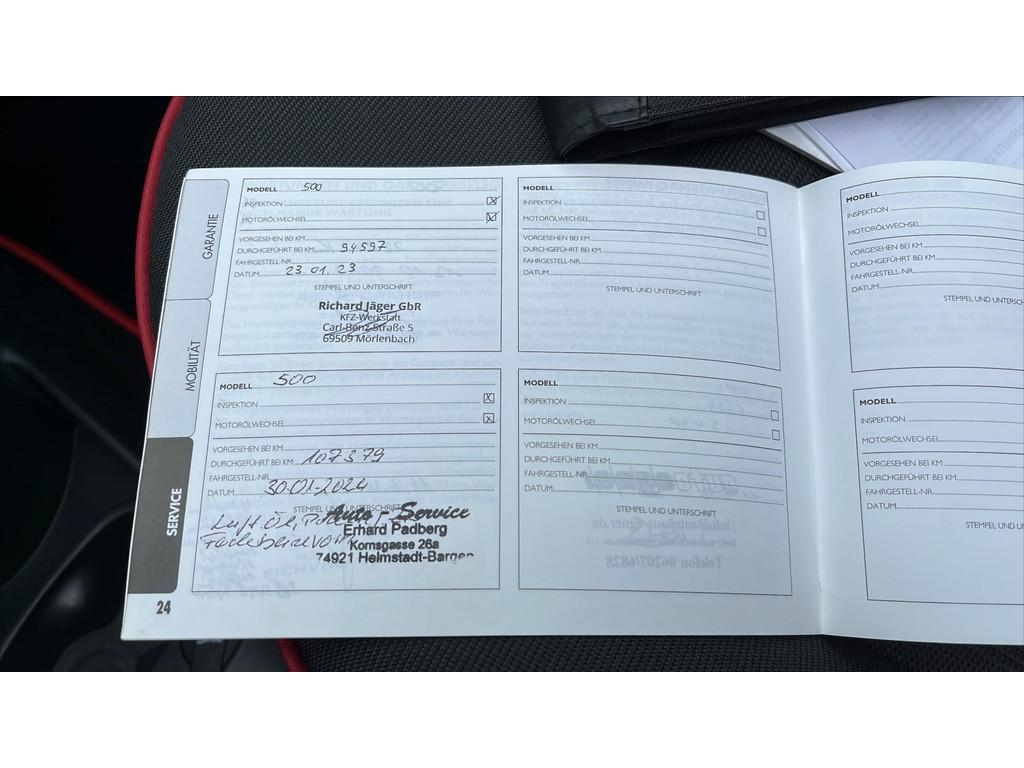 GARANTIE
MOBILITÄT
SERVICE
MODELL 500
INSPEKTION
MOTORÖLWECHSEL
VORGESEHEN BEI KM
DURCHGEFÜHRT BEI KM 94597
FAHRGESTELL-NR.
DATUM 23.01.23
STEMPEL UND UNTERSCHRIFT
Richard Jäger GbR
KFZ-Werkstatt
Carl-Benz-Straße 5
69509 Mörlenbach
MODELL 500
INSPEKTION
MOTORÖLWECHSEL
VORGESEHEN BEI KM
DURCHGEFÜHRT BEI KM 107379
FAHRGESTELL-NR.
DATUM 30-01-2024
STEMPEL UND UNTERSCHRIFT
Auto - Service
Erhard Padberg
Kornsgasse 26a
74921 Helmstadt-Bargen
Luft Öl,
24
MODELL
INSPEKTION
MOTORÖLWECHSEL
VORGESEHEN BEI KM
DURCHGEFÜHRT BEI KM
FAHRGESTELL-NR.
DATUM
STEMPEL UND UNTERSCHRIFT
MODELL
INSPEKTION
MOTORÖLWECHSEL
VORGESEHEN BEI KM
DURCHGEFÜHRT BEI KM
FAHRGESTELL-NR.
DATUM
STEMPEL UND UNTERSCHRIFT
MODELL
INSPEKTION
MOTORÖLWECHSEL
VORGESEHEN BEI KM
DURCHGEFÜHRT BEI KM
FAHRGESTELL-NR.
DATUM
STEMPEL UND UNTERSCH
MODELL
INSPEKTION
MOTORÖLWECHSEL
VORGESEHEN BEI KM
DURCHGEFÜHRT BEI KM
FAHRGESTELL-NR.
DATUM
STEMPEL UND U